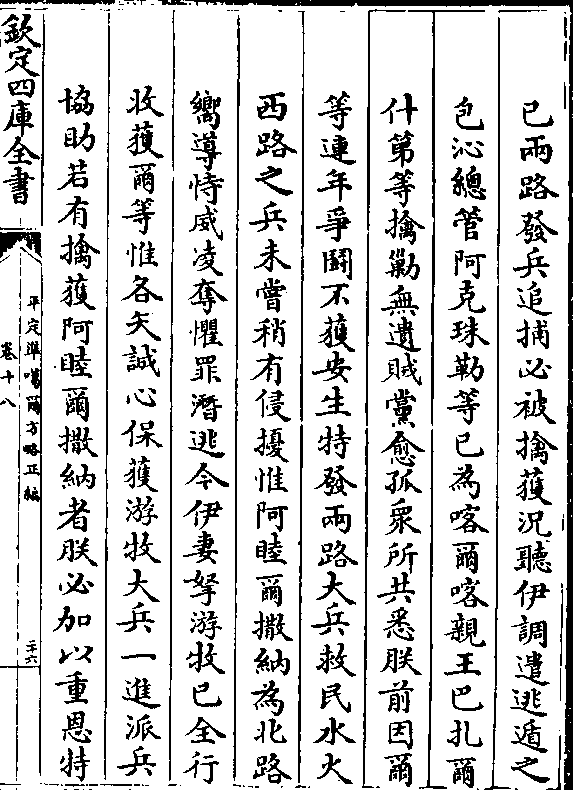 已兩路發兵追捕必被擒獲況聽伊調遣逃遁之
包沁總管阿克珠勒等已為喀爾喀親王巴扎爾
什第等擒勦無遺賊黨愈孤衆所共悉朕前因爾
等連年爭鬬不獲安生特發兩路大兵救民水火
西路之兵未嘗稍有侵擾惟阿睦爾撒納為北路
嚮導恃威凌奪懼罪潛逃今伊妻孥游牧已全行
收獲爾等惟各矢誠心保獲游牧大兵一進派兵
協助若有擒獲阿睦爾撒納者朕必加以重恩特
欽定四庫全書
平定準噶爾方略正編
卷十八
二十六